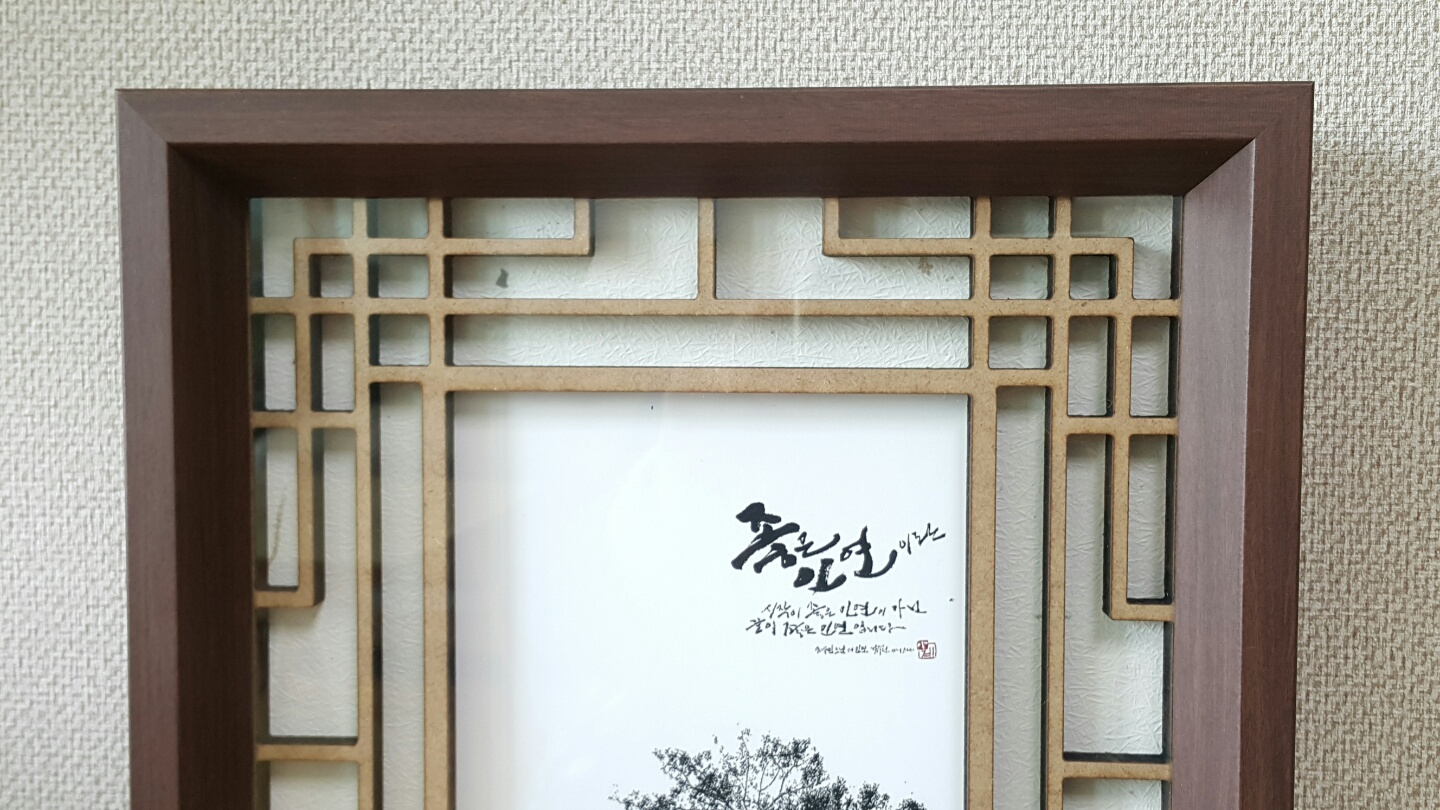 좋은 인연이란
시작이 좋은 인연이 아닌
끝이 좋은 인연입니다